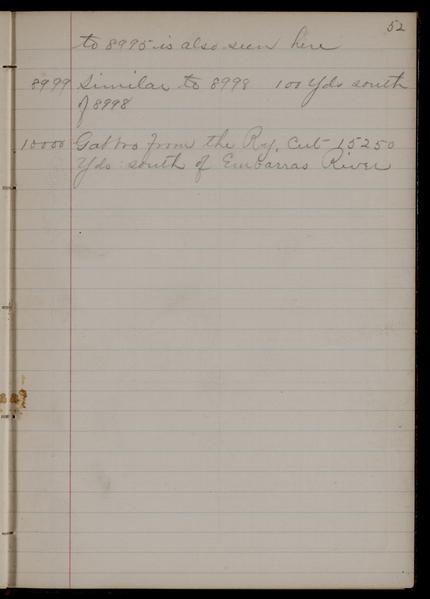 52
to 8995 is also seen here
8999 Similar to 8998 100 Yds south
of 8998
10000 Gabbro from the Ry. Cut 15250
Yds south of Embarras River